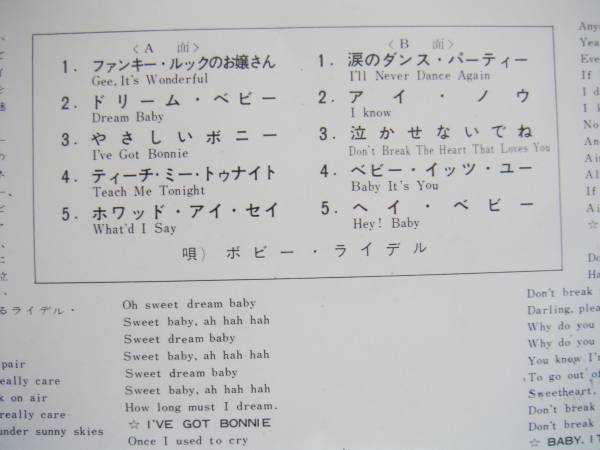 〈A 面〉
1. ファンキー・ルックのお嬢さん
Gee, It's Wonderful
2. ドリーム・ベビー
Dream Baby
3. やさしいボニー
I've Got Bonnie
4. ティーチ・ミー・トゥナイト
Teach Me Tonight
5. ホワッド・アイ・セイ
What'd I Say
〈B 面〉
1. 涙のダンス・パーティー
I'll Never Dance Again
2. アイ・ノウ
I know
3. 泣かせないでね
Don't Break The Heart That Loves You
4. ベビー・イッツ・ユー
Baby It's You
5. ヘイ・ベビー
Hey! Baby
唄) ボビー・ライデル
るライデル・
pair
really care
k on air
really care
under sunny skies
Oh sweet dream baby
Sweet baby, ah hah hah
Sweet dream baby
Sweet baby, ah hah hah
Sweet dream baby
Sweet baby, ah hah hah
How long must I dream.
☆ I'VE GOT BONNIE
Once I used to cry
Any
Yea
Eve
If
I d
I k
No
An
Ai
Al
If
Ai
☆
Do
Ha
Don't break
Darling, plea
Why do you
Why do you
You know I'm
To go out of
Sweetheart,
Don't break
Don't break
☆ BABY, IT